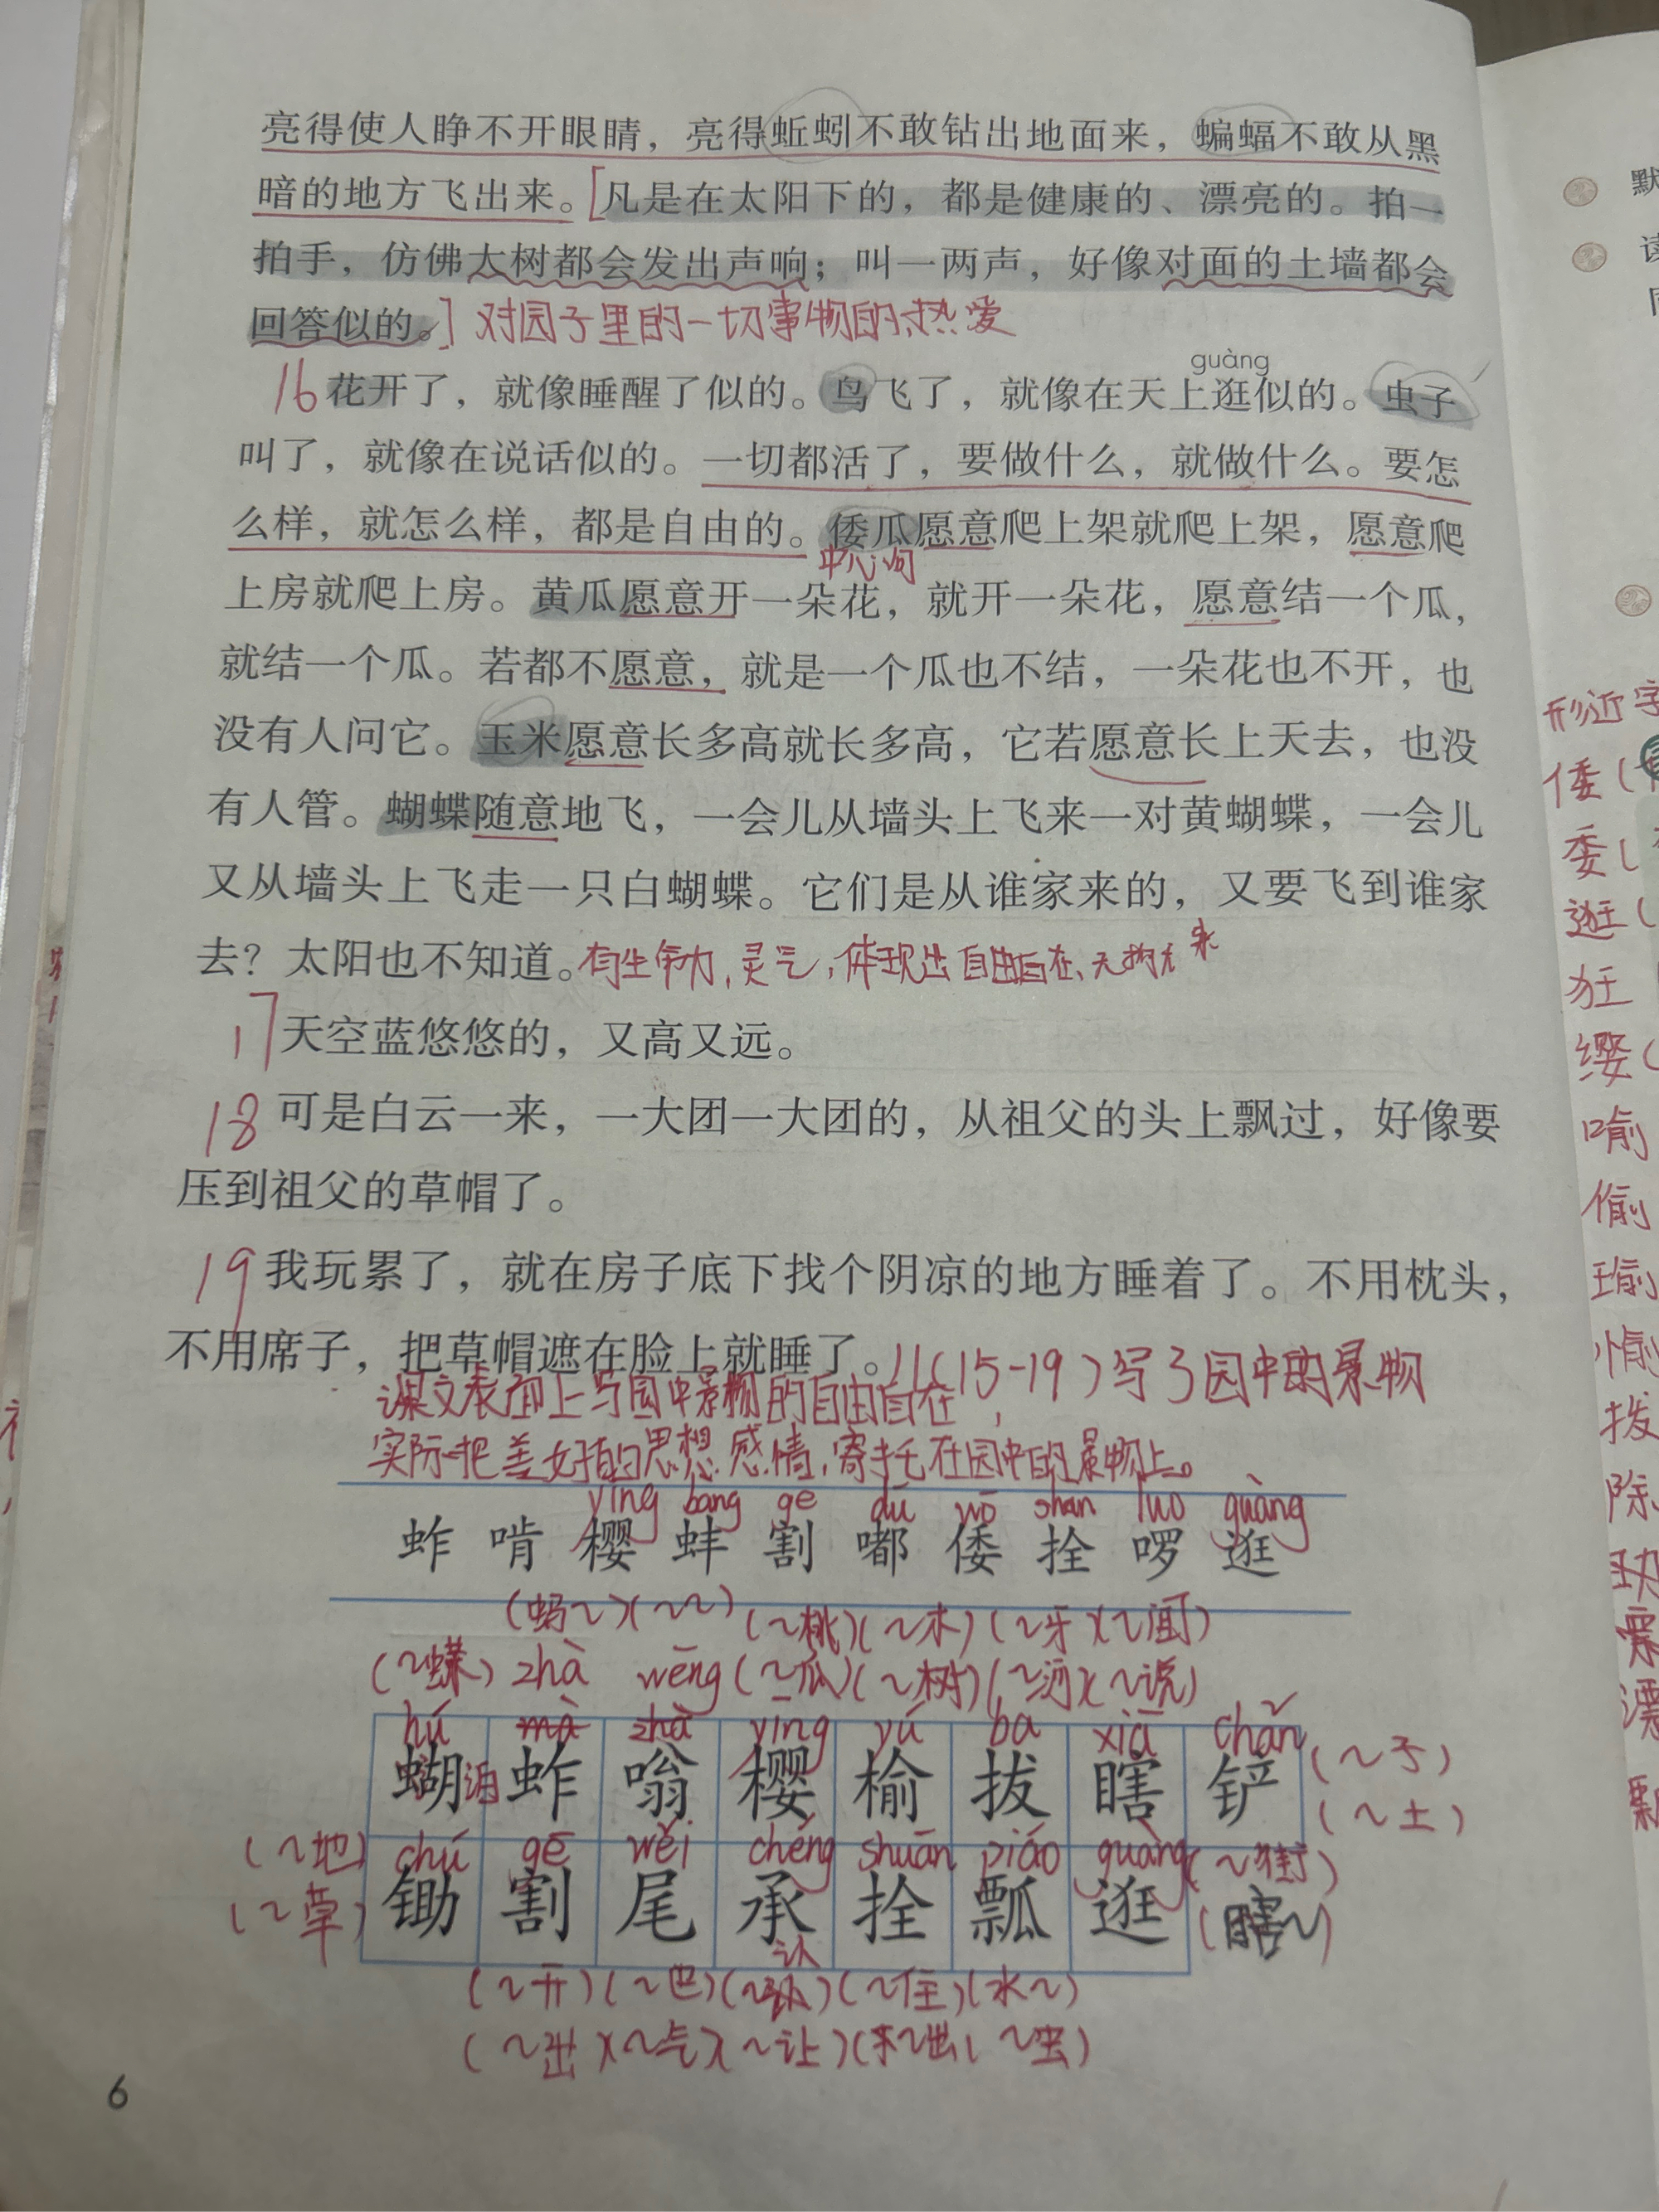 亮得使人睁不开眼睛，亮得蚯蚓不敢钻出地面来，蝙蝠不敢从黑
暗的地方飞出来。[凡是在太阳下的，都是健康的、漂亮的。拍一
拍手，仿佛大树都会发出声响；叫一两声，好像对面的土墙都会
回答似的。] 对园子里的一切事物的热爱
guàng
16 花开了，就像睡醒了似的。鸟飞了，就像在天上逛似的。虫子
叫了，就像在说话似的。一切都活了，要做什么，就做什么。要怎
么样，就怎么样，都是自由的。倭瓜愿意爬上架就爬上架，愿意爬
中心句
上房就爬上房。黄瓜愿意开一朵花，就开一朵花，愿意结一个瓜，
就结一个瓜。若都不愿意，就是一个瓜也不结，一朵花也不开，也
没有人问它。玉米愿意长多高就长多高，它若愿意长上天去，也没
有人管。蝴蝶随意地飞，一会儿从墙头上飞来一对黄蝴蝶，一会儿
又从墙头上飞走一只白蝴蝶。它们是从谁家来的，又要飞到谁家
去？太阳也不知道。有生命力，灵气，体现出自由自在、无拘无束
17 天空蓝悠悠的，又高又远。
18 可是白云一来，一大团一大团的，从祖父的头上飘过，好像要
压到祖父的草帽了。
19 我玩累了，就在房子底下找个阴凉的地方睡着了。不用枕头，
不用席子，把草帽遮在脸上就睡了。//(15-19)写了园中的景物
课文表面上写园中景物的自由自在，
实际把美好的思想感情，寄托在园中的景物上。
yīng bàng gē dū wō shuān luo guàng
蚱 啃 樱 蚌 割 嘟 倭 拴 啰 逛
(蚂~)(~~)(~桃)(~木)(~牙)(~闹)
(~蝶) zhà wēng (~瓜)(~树)(~河)(~说)
hú zhà yīng yú bá xiā chǎn
蝴 蚱 嗡 樱 榆 拔 瞎 铲 (~子)
(~土)
(~地) chú gē wěi chéng shuān piáo guàng (~街)
(~草) 锄 割 尾 承 拴 瓢 逛 (瞎~)
(~开)(~巴)(~认)(~住)(水~)
(~出)(~气)(~让)(~虫)
6
默
读
形近字
倭(
委(
逛(
狂
缨(
喻
偷
瑜
愉
拨
除
漂
瓢